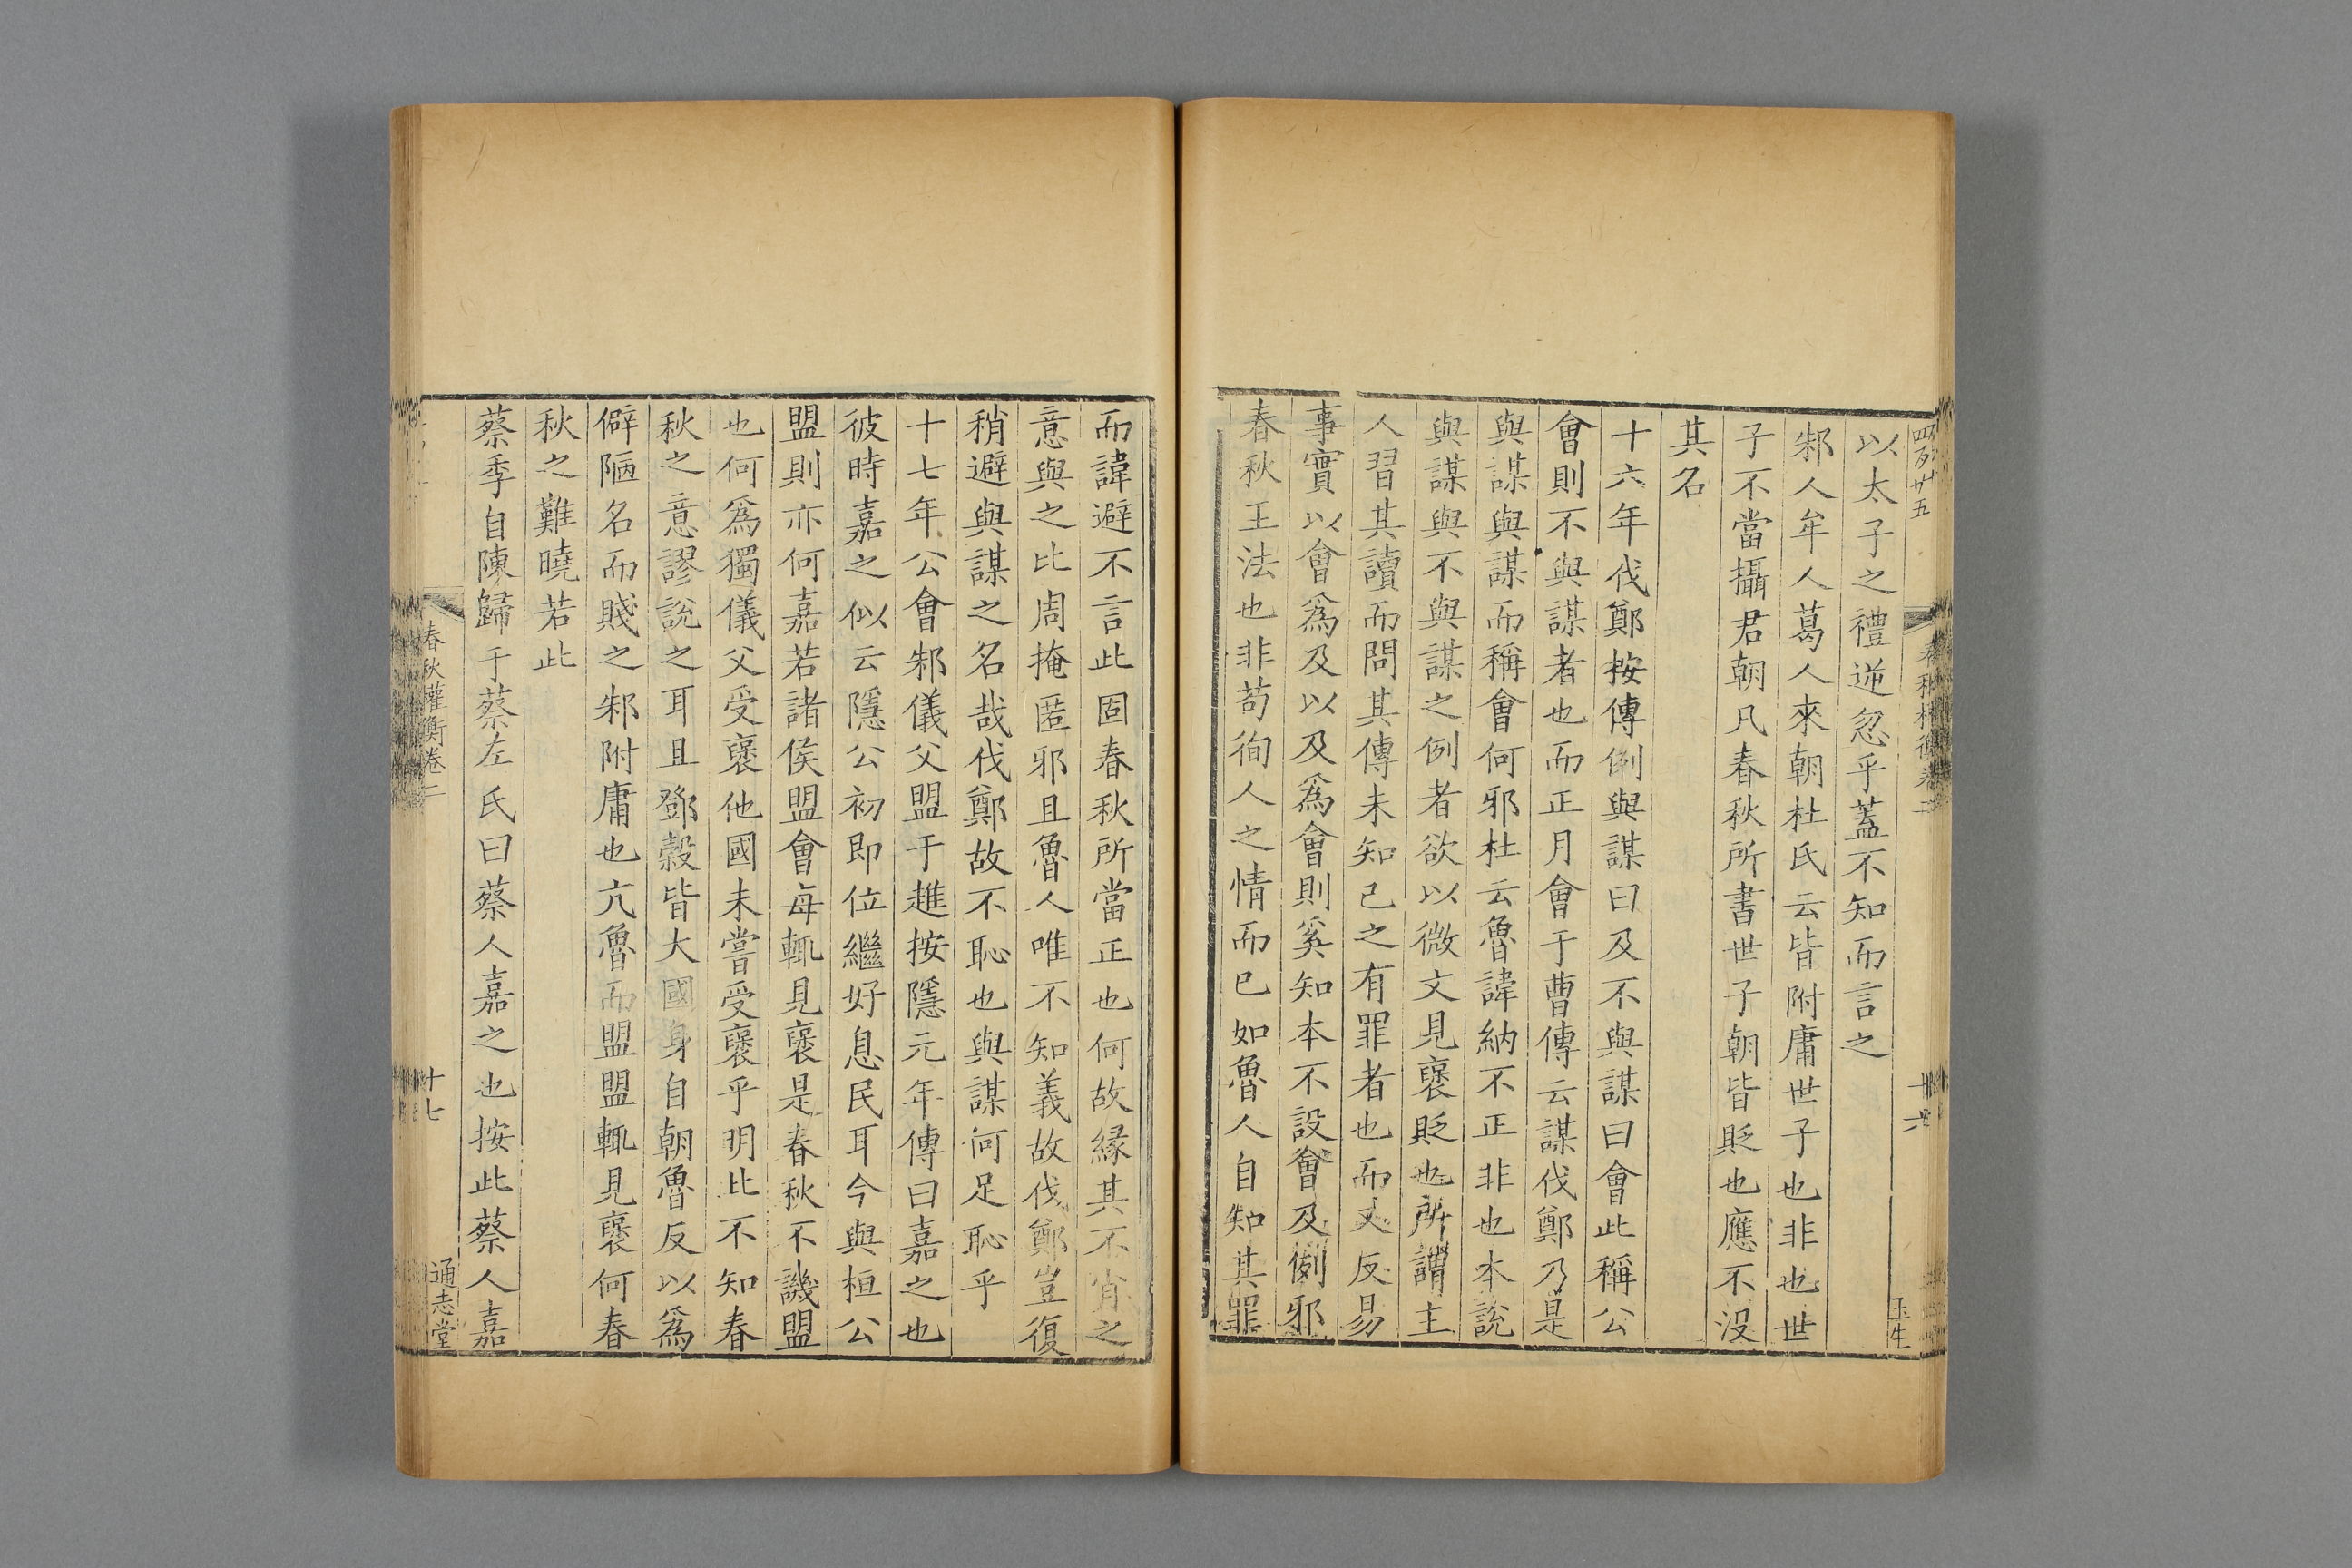 四百廿五
春秋權衡卷二
十六
玉生
以太子之禮逆忽乎蓋不知而言之
邾人牟人葛人來朝杜氏云皆附庸世子也非也世
子不當攝君朝凡春秋所書世子朝皆貶也應不沒
其名
十六年伐鄭按傳例與謀曰及不與謀曰會此稱公
會則不與謀者也而正月會于曹傳云謀伐鄭乃是
與謀與謀而稱會何邪杜云魯諱納不正非也本說
與謀與不與謀之例者欲以微文見襃貶也所謂主
人習其讀而問其傳未知己之有罪者也而又反易
事實以會爲及以及爲會則奚知本不設會及例邪
春秋王法也非苟徇人之情而已如魯人自知其罪
而諱避不言此固春秋所當正也何故緣其不肯之
意與之比周掩匿邪且魯人唯不知義故伐鄭豈復
稍避與謀之名哉伐鄭故不恥也與謀何足恥乎
十七年公會邾儀父盟于趡按隱元年傳曰嘉之也
彼時嘉之似云隱公初即位繼好息民耳今與桓公
盟則亦何嘉若諸侯盟會每輒見襃是春秋不譏盟
也何爲獨儀父受襃他國未嘗受襃乎明此不知春
秋之意謬說之耳且鄧榖皆大國身自朝魯反以爲
僻陋名而賤之邾附庸也亢魯而盟盟輒見襃何春
秋之難曉若此
蔡季自陳歸于蔡左氏曰蔡人嘉之也按此蔡人嘉
春秋權衡卷二
十七
通志堂